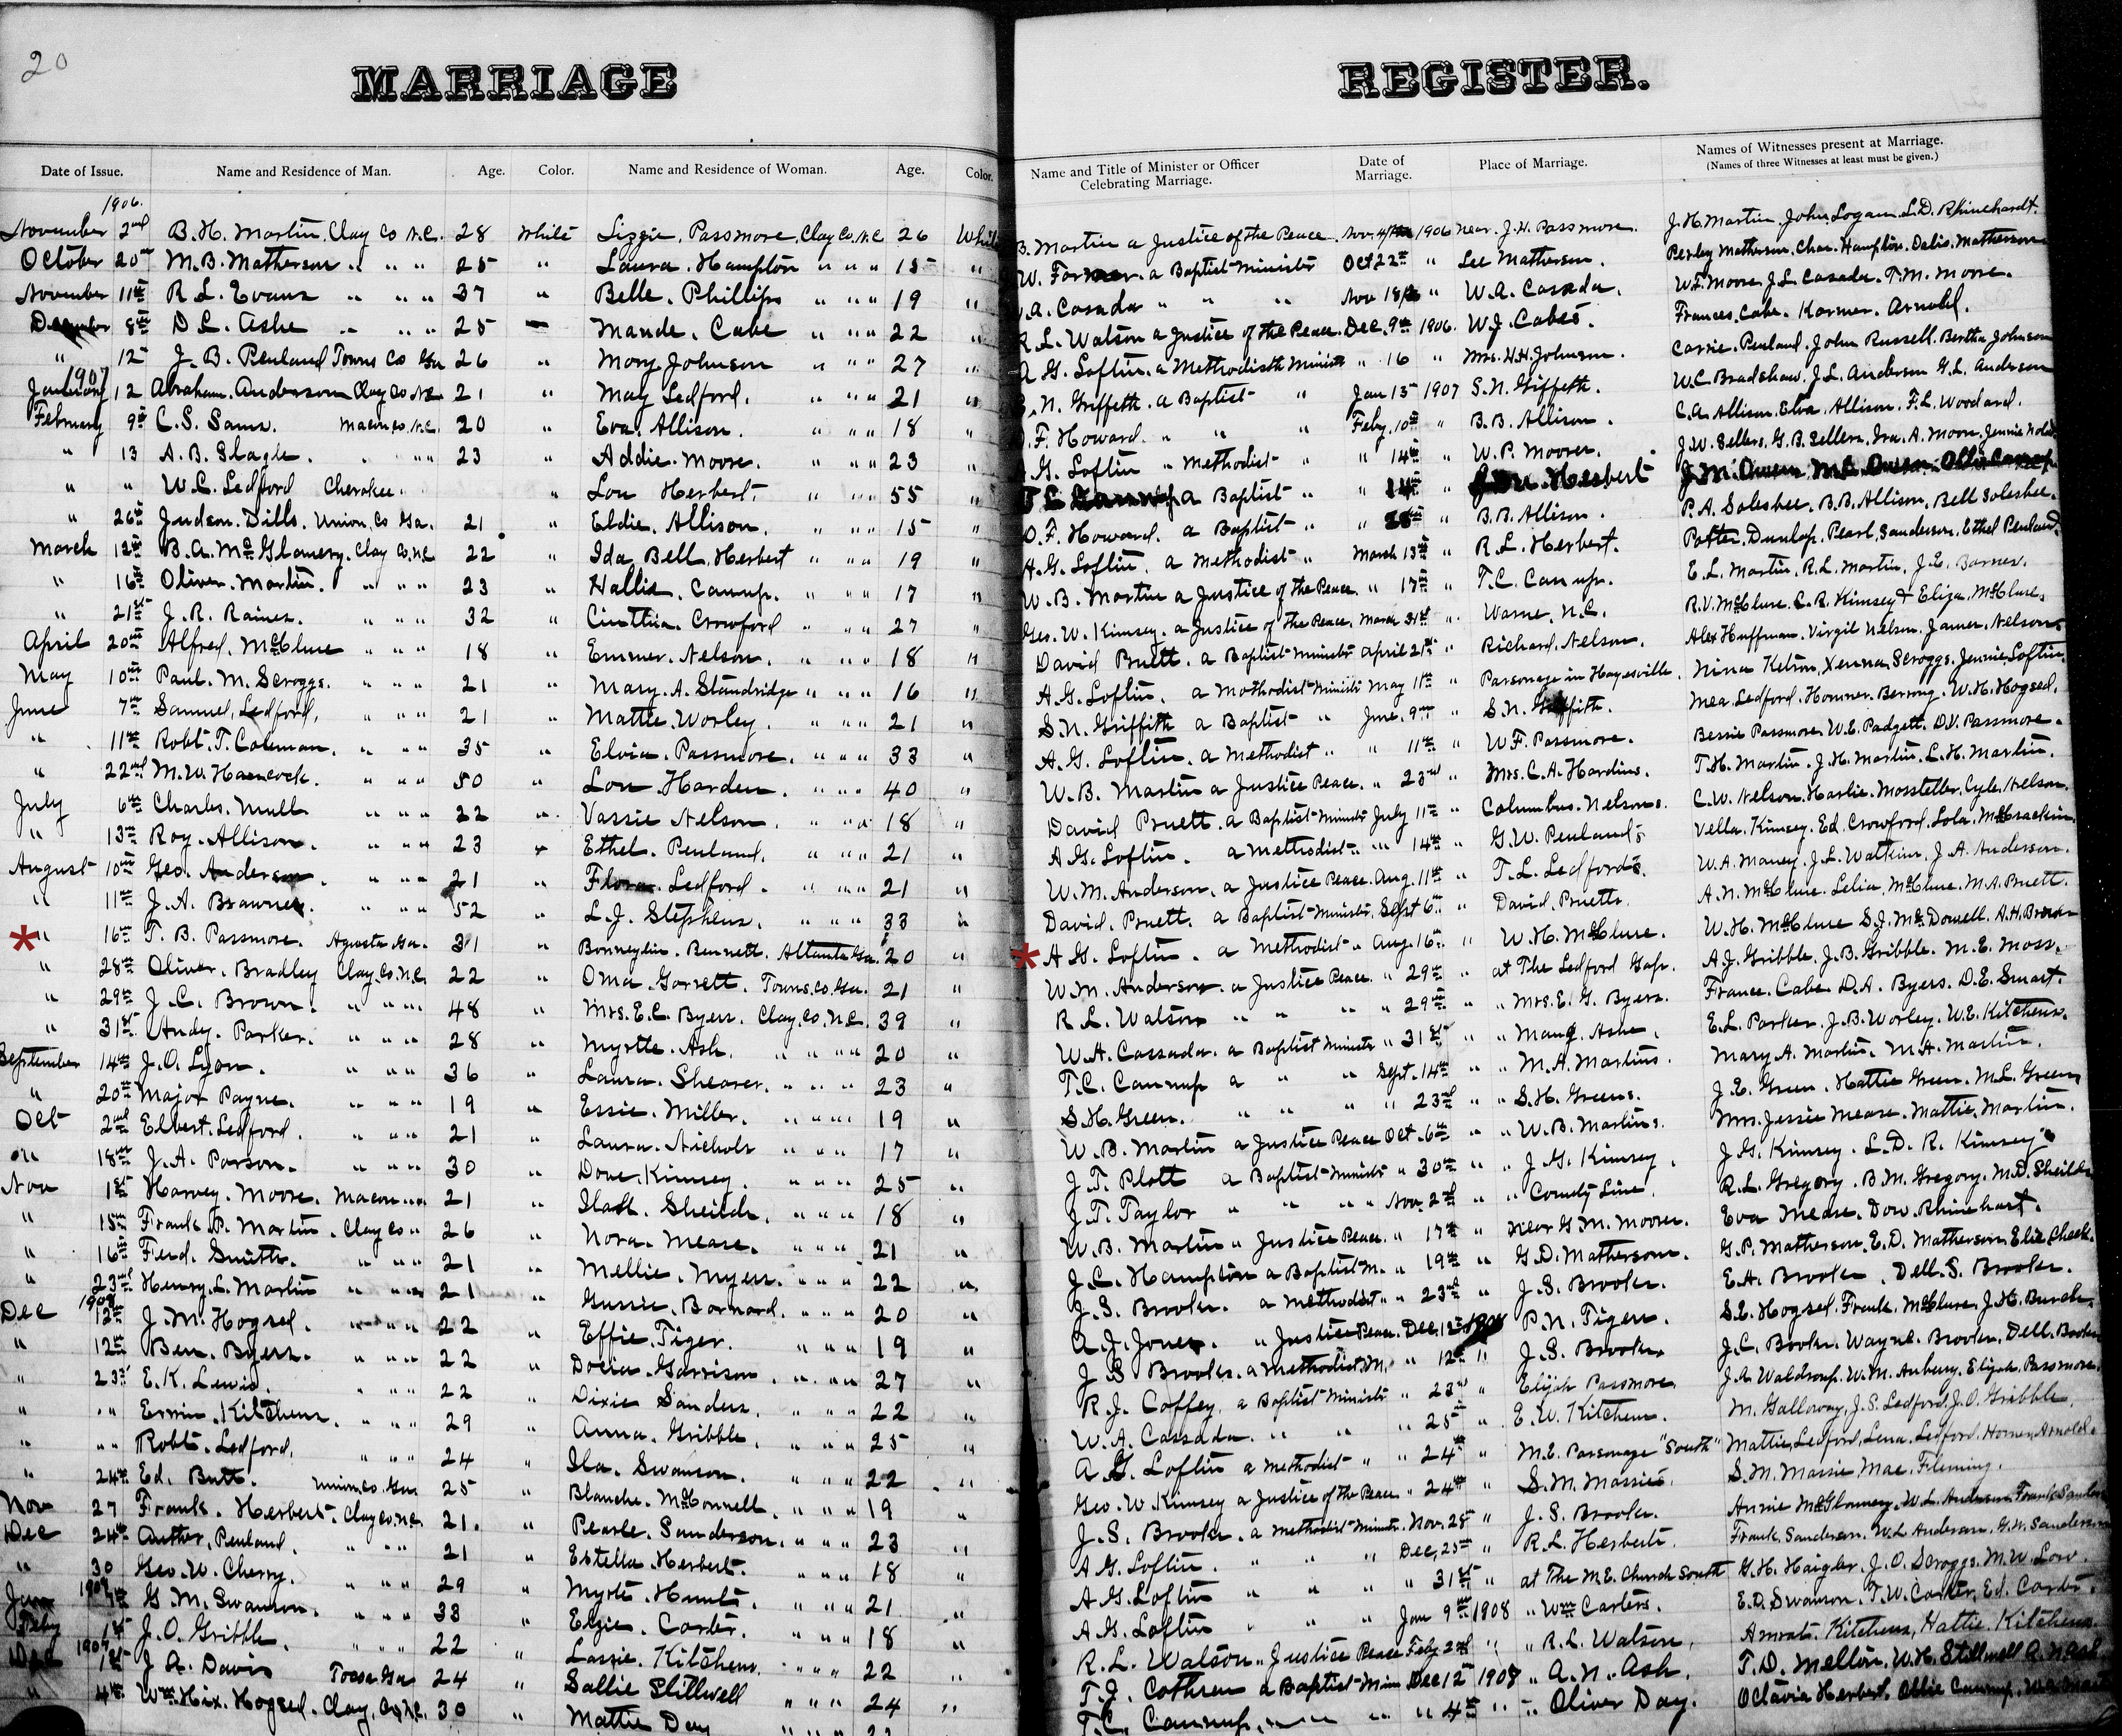 20
MARRIAGE REGISTER.
Date of Issue. Name and Residence of Man. Age. Color. Name and Residence of Woman. Age. Color. Name and Title of Minister or Officer Celebrating Marriage. Date of Marriage. Place of Marriage. Names of Witnesses present at Marriage. (Names of three Witnesses at least must be given.)
1906.
November 2nd B. H. Martin, Clay Co N.C. 28 White Lizzie. Passmore, Clay Co. N.C. 26 White B. Martin a Justice of the Peace. Nov. 1906 near J. H. Passmore. J. H. Martin. John Logan. L. D. Rhinehardt.
October 20 M. B. Matherson " " " 25 " Laura. Hampton " " " 15 " W. Farmer. a Baptist Minister Oct 22 " Lee Matherson. Perley Matherson. Chas. Hampton. Matherson
November 11th R. L. Evans " " " 37 " Belle. Phillips " " " 19 " A. Casada " " " Nov 18 " W. A. Casada. W. L. Moore. J. L. Casada. T. M. Moore.
December 8th D. L. Ashe " " " 25 — Maude. Cabe " " " 22 " R. L. Watson a Justice of the Peace. Dec. 9th 1906. W. J. Cabes. Frances. Cabe. Arnold.
" 12 J. B. Penland Towns Co Ga 26 " Mary Johnson " " " 27 " A. G. Loftin. a Methodist Minist " 16 " Mrs. H. H. Johnson. Carrie. Penland. John Russell. Bertha Johnson
1907
January 12 Abraham. Anderson Clay Co N.C. 21 " May Ledford. " " " 21 " S. N. Griffeth. a Baptist " Jan 13 1907 S. N. Griffeth. W. C. Bradshaw. J. L. Anderson G. L. Anderson
February 9th C. S. Sams. Macon Co. N.C. 20 " Eva. Allison. " " " 18 " O. F. Howard. " " " Feby. 10th " B. B. Allison. C. A. Allison. Elva. Allison. F. L. Woodard.
" 13 A. B. Slagle. " " " 23 " Addie. Moore. " " " 23 " A. G. Loftin " Methodist " " 14th " W. P. Moores. J. W. Sellers. G. B. Sellers. Ira. A. Moore. Jennie
" " W. C. Ledford Cherokee. " Lou Herbert. " " " 55 " a Baptist " " 14th " Herbert J. M. Owen
" 26th Judson. Dills. Union. Co Ga. 21 " Eldie. Allison. " " " 15 " O. F. Howard. a Baptist " " " B. B. Allison. P. A. Solesbee. B. B. Allison. Bell Solesbee.
March 12th B. A. McGlamery. Clay Co. N.C. 22 " Ida Bell. Herbert " " " 19 " A. G. Loftin. a Methodist " March 13th " R. L. Herbert. Potter. Dunlap. Pearl. Sanderson. Ethel Penland.
" 16th Oliver. Martin. " " " 23 " Hallie. Cannup. " " " 17 " W. B. Martin a Justice of the Peace. " 17th " T. C. Cannup. E. L. Martin. R. L. Martin. J. E. Barnes.
" 21st J. R. Raines. " " " 32 " Cinthia. Crowford " " " 27 " Geo. W. Kimsey. a Justice of the Peace. March 31st " Warne, N.C. R. V. McClure. C. R. Kimsey & Eliza. McClure.
April 20th Alfred. McClure " " " 18 " Emmer. Nelson. " " " 18 " David Pruett. a Baptist Minister April 21st " Richard. Nelson. Alex Huffman. Virgil Nelson. James. Nelson.
May 10th Paul. M. Scroggs. " " " 21 " Mary. A. Standridge " " " 16 " A. G. Loftin. a Methodist Ministr May 11th " Parsonage in Hayesville. Nina Ketron. Xenna. Scroggs. Jennie Loftin.
June 7th Samuel. Ledford. " " " 21 " Mattie. Worley. " " " 21 " S. N. Griffith a Baptist " June. 9th " S. N. Griffith. Mea. Ledford. Homer. Berrong. W. H. Hogsed.
" 11th Robt. T. Coleman. " " " 35 " Elvia. Passmore. " " " 33 " A. G. Loftin. a Methodist " " 11th " W. F. Passmore. Bessie Passmore. W. E. Padgett. D. V. Passmore.
" 22nd M. W. Hancock. " " " 50 " Lou Harden. " " " 40 " W. B. Martin a Justice Peace. " 23rd " Mrs. C. A. Hardins. T. H. Martin. J. H. Martin. L. H. Martin.
July 6th Charles. Mull " " " 22 " Vassie Nelson. " " " 18 " David Pruett. a Baptist Ministr July 11th " Columbus. Nelsons. C. W. Nelson. Harlie. Mosteller. Cyle. Nelson.
" 13th Roy. Allison. " " " 23 " Ethel. Penland. " " " 21 " A. G. Loftin. a Methodist " " 14th " G. W. Penland's Vella. Kimsey. Ed. Crowford. Lola. McCrackin.
August 10th Geo. Anderson. " " " 21 " Flora. Ledford. " " " 21 " W. M. Anderson. a Justice Peace. Aug. 11th " T. L. Ledford's. W. A. Maney. J. L. Watkins. J. A. Anderson.
" 11th J. A. Brawner. " " " 52 " L. J. Stephens. " " " 33 " David. Pruett. a Baptist Minister. Sept 6th " David. Pruetts. A. N. McClure. Lelia. McClure. M. A. Pruett.
* " 16th T. B. Passmore. Agusta Ga. 31 " Bonneylin. Bennett. Altlanta Ga. 20 " * A. G. Loftin. a Methodist " Aug. 16th " W. H. McClure. W. H. McClure S. J. McDowell. A. H. Brown
" 28th Oliver. Bradley Clay. Co. N.C. 22 " Oma. Garrett. Towns. Co. Ga. 21 " W. M. Anderson. a Justice Peace. " 29th " at The Ledford Gap. A. J. Gribble. J. B. Gribble. M. E. Moss.
" 29th J. C. Brown. " " " 48 " Mrs. E. C. Byers. Clay. Co. N.C. 39 " R. L. Watson " " " " 29th " " Mrs. E. G. Byers. France. Cabe. D. A. Byers. D. E. Smart.
" 31st Andy. Parker. " " " 28 " Myrtle. Ash. " " " 20 " W. A. Cassada. a Baptist Minister " 31st " " Ashe. E. L. Parker. J. B. Worley. W. E. Kitchens.
September 14th J. O. Lyon. " " " 36 " Laura. Shearer. " " " 23 " T. C. Cannup a " " Sept. 14th " " M. A. Martins. Mary A. Martin. M. A. Martin.
" 20th Major Payne. " " " 19 " Essie. Miller. " " " 19 " S. H. Green. " " " " 23rd " " S. H. Greens. J. E. Green. Hattie Green. M. L. Green
Oct 2nd Elbert. Ledford. " " " 21 " Laura. Nichols " " " 17 " W. B. Martin a Justice Peace Oct. 6th " " W. B. Martins. Mrs. Jessie Mease. Mattie. Martin.
" 18th J. A. Parson. " " " 30 " Dove. Kimsey. " " " 25 " J. T. Plott a Baptist Ministr " 30th " " J. G. Kimsey. J. G. Kimsey. L. D. R. Kimsey
Nov 1st Harvey. Moore. Macon " " 21 " Sheilds. " " " 18 " J. T. Taylor " " " " Nov. 2nd " " County Line. R. L. Gregory. B. M. Gregory. M. D. Sheilds
" 15th Frank. P. Martin. Clay Co " 26 " Nora. Mease. " " " 21 " W. B. Martin " Justice Peace. " 17th " near G. M. Moores. Eva Mease. Dow. Rhinehart.
" 16th Ferd. Smith. " " " 21 " Mellie. Myers. " " " 22 " J. C. Hampton a Baptist M. " 19th " G. D. Matherson. G. P. Matherson. E. D. Matherson
" 23rd Henry. L. Martin " " " 21 " Gussie. Barnard. " " " 20 " J. S. Brooks. a Methodist " " 23rd " J. S. Brooks. E. A. Brooks. Dell. S. Brooks.
Dec 12th J. M. Hogsed. " " " 22 " Effie. Tiger. " " " 19 " A. J. Jones. " Justice Peace. Dec. 12th P. N. Tigers. S. E. Hogsed. Frank. McClure. J. H. Burch.
" 12th Ben. Byers. " " " 22 " Docia. Garrison. " " " 27 " J. S. Brooks. a Methodist. M. " 12th " J. S. Brooks J. C. Brooks. Wayne. Brooks. Dell. Brooks
" 23 E. K. Lewis. " " " 22 " Dixie Sanders. " " " 22 " R. J. Coffey. a Baptist Ministr " 23rd " Elijah Passmore. J. A. Waldroup. W. M. Anbury. Elijah. Passmore.
" " Ermin. Kitchens. " " " 29 " Anna. Gribble. " " " 25 " W. A. Cassada. " " " 25 " E. W. Kitchens. M. Galloway. J. S. Ledford. J. O. Gribble.
" " Robt. Ledford. " " " 24 " Ila. Swanson. " " " 22 " A. G. Loftin a Methodist " " 24th " M. E. Parsonage "South" Mattie. Ledford. Lena. Ledford. Homer. Arnold.
" 24th Ed. Butt. Union. Co Ga 25 " Blanche. McConnell. " " " 19 " Geo. W Kimsey a Justice of the Peace " 24th " S. M. Massies. S. M. Massie Mae. Fleming.
Nov 27 Frank. Herbert. Clay Co. N.C. 21. " Pearle. Sanderson. " " " 23 " J. S. Brooks. a Methodist Ministr. Nov. 28 " J. S. Brooks. Annie McGlamery. W. L. Anderson. Frank Sanders
Dec 24th Auther. Penland. " " " 21 " Estella. Herbert. " " " 18 " A. G. Loftin. " " " Dec. 25th " R. L. Herberts. Frank. Sanderson. W. L. Anderson. G. W. Sanderson
" 30 Geo. W. Cherry. " " " 29 " Myrte. Hunt. " " " 21 " A. G. Loftin " " " " 31st " at The M. E. Church South G. H. Haigler. J. O. Scroggs. M. W. Low.
Jan G. M. Swanson. " " " 33 " Elzie. Carter. " " " 18 " A. G. Loftin " " " Jan 9th 1908 " Wm Carters. E. D. Swanson. T. W. Carter. Ed. Carter.
Feby 1st J. O. Gribble. " " " 22 " Lassie. Kitchens. " " " 22 " R. L. Watson " Justice Peace Feby 2nd " " R. L. Watson. Kitchens, Hattie. Kitchens.
1907
Dec 1st J. A. Davis Ga 24 " Sallie Stillwell " " " 24 " T. J. Cothren a Baptist Min Dec 12 " A. N. Ash. T. D. Mellon. W. H. Stillwell A. Nash
" 4th Wm. Hix. Hogsed. Clay. Co. N.C. 30 " Mattie Day " " " T. C. Cannup. " " " 4th " " Oliver Day. Octavia Herbert. Ollie Cannup.